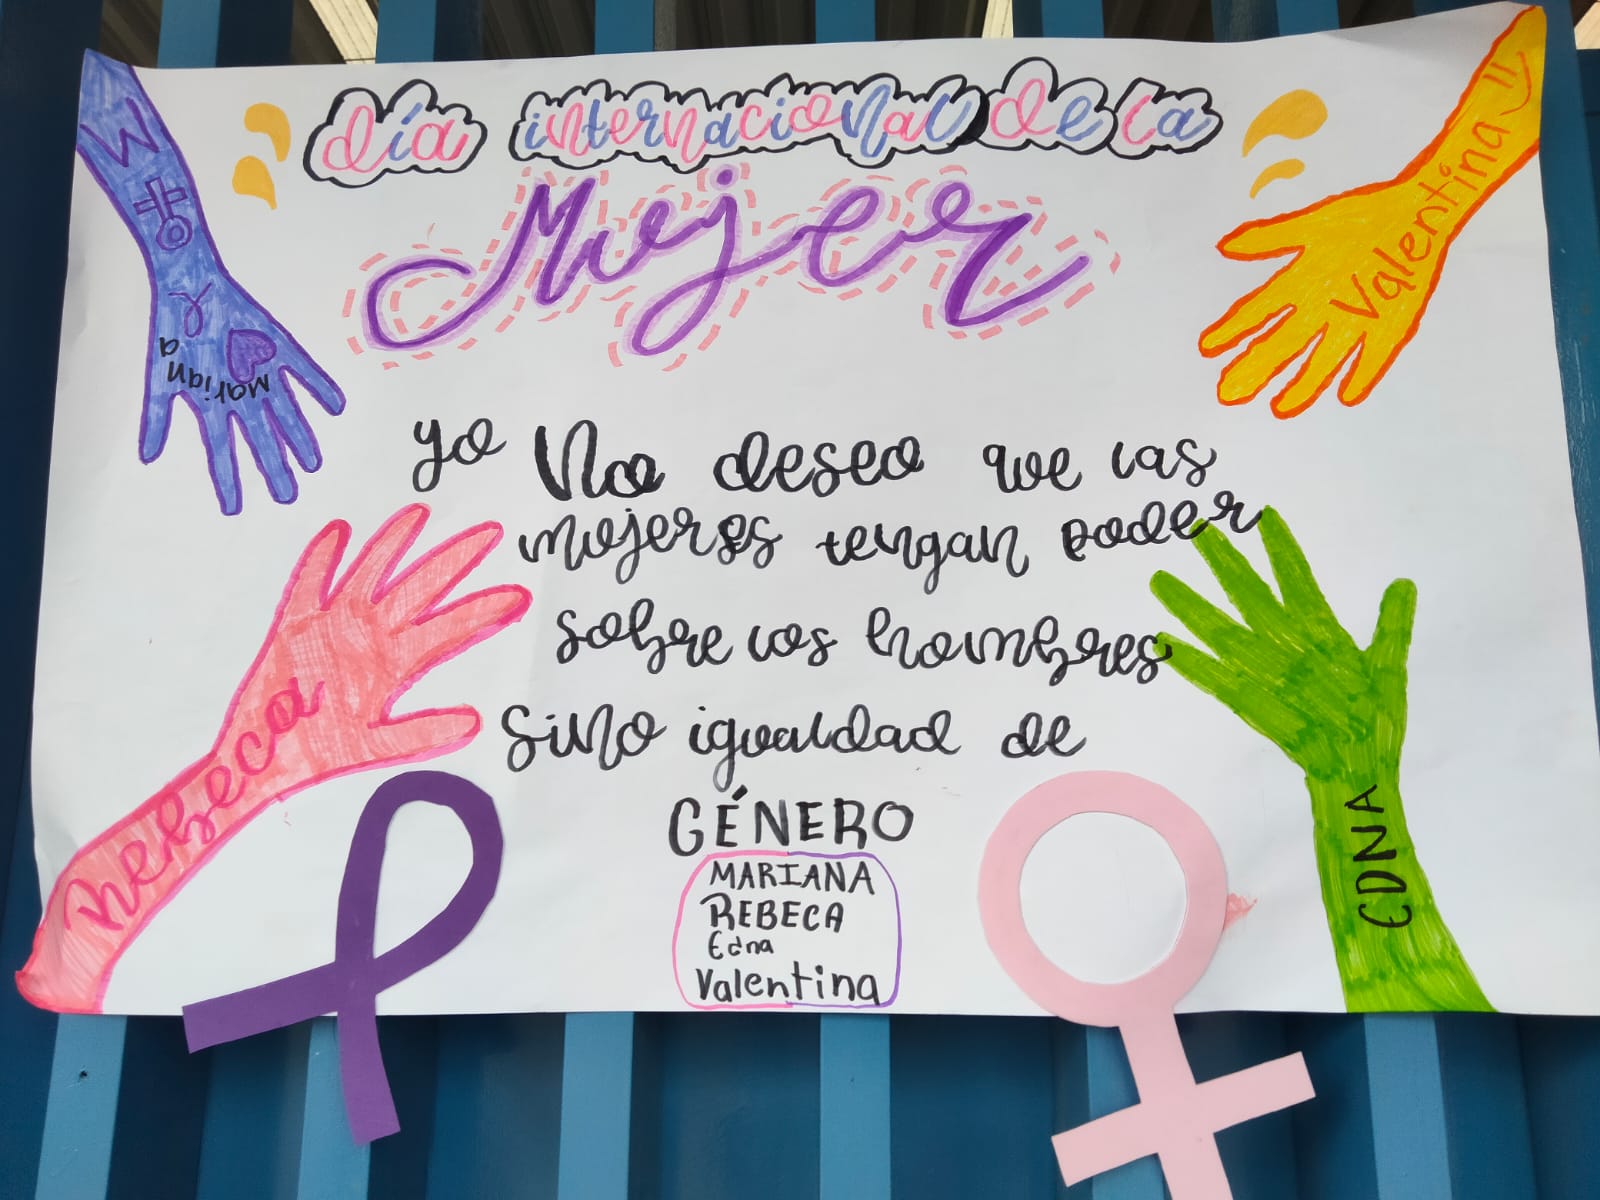 día internacional de la
Mujer
W
Mariana
Valentina
yo No deseo que las
mujeres tengan poder
sobre los hombres
sino igualdad de
GÉNERO
Rebeca
EDNA
MARIANA
REBECA
Edna
Valentina